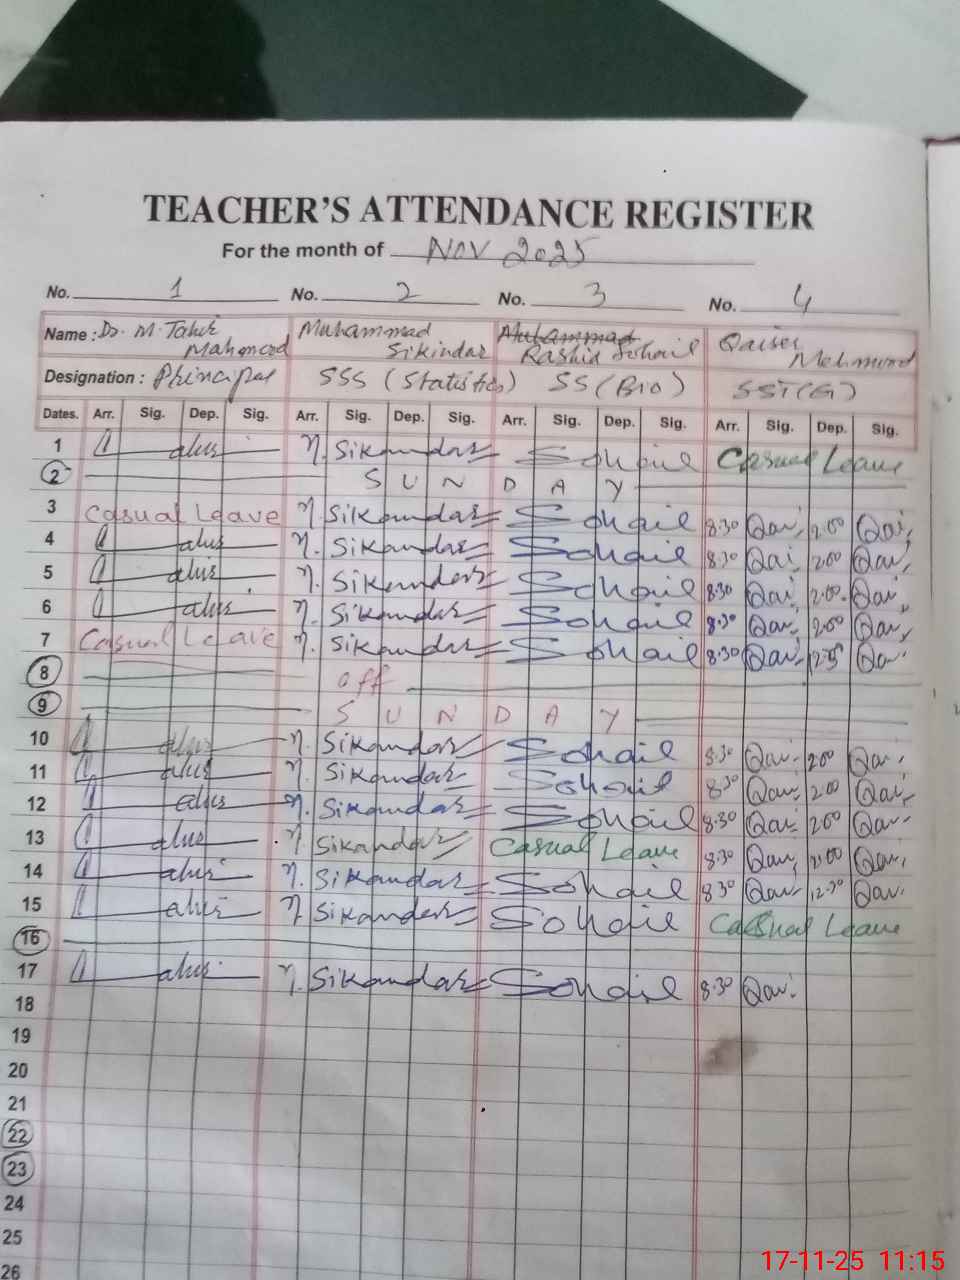 TEACHER'S ATTENDANCE REGISTER
For the month of NOV 2025
No. 1 No. 2 No. 3 No. 4
Name : Dr. M. Tahir Mahmood Muhammad Sikindar Muhammad Rashid Sohail Qaiser Mehmood
Designation : Principal SSS (Statistics) SS (Bio) SST (G)
Dates. Arr. Sig. Dep. Sig. Arr. Sig. Dep. Sig. Arr. Sig. Dep. Sig. Arr. Sig. Dep. Sig.
1 Sikandar Sohail Casual Leave
2 S U N D A Y
3 Casual Leave Sikandar Sohail 8:30 Qai 2:00 Qai
4 Sikandar Sohail 8:30 Qai 2:00 Qai
5 Sikandar Sohail 8:30 Qai 2:00 Qai
6 Sikandar Sohail 8:30 Qai 2:00 Qai
7 Casual Leave Sikandar Sohail 8:30 Qai Qai
8 off
9 S U N D A Y
10 Sikandar Sohail 8:30 Qai 2:00 Qai
11 Sikandar Sohail 8:30 Qai 2:00 Qai
12 Sikandar Sohail 8:30 Qai 2:00 Qai
13 Sikandar Casual Leave 8:30 Qai 2:00 Qai
14 Sikandar Sohail 8:30 Qai 12:30 Qai
15 Sikandar Sohail Casual Leave
16
17 Sikandar Sohail 8:30 Qai
18
19
20
21
22
23
24
25
26
17-11-25 11:15